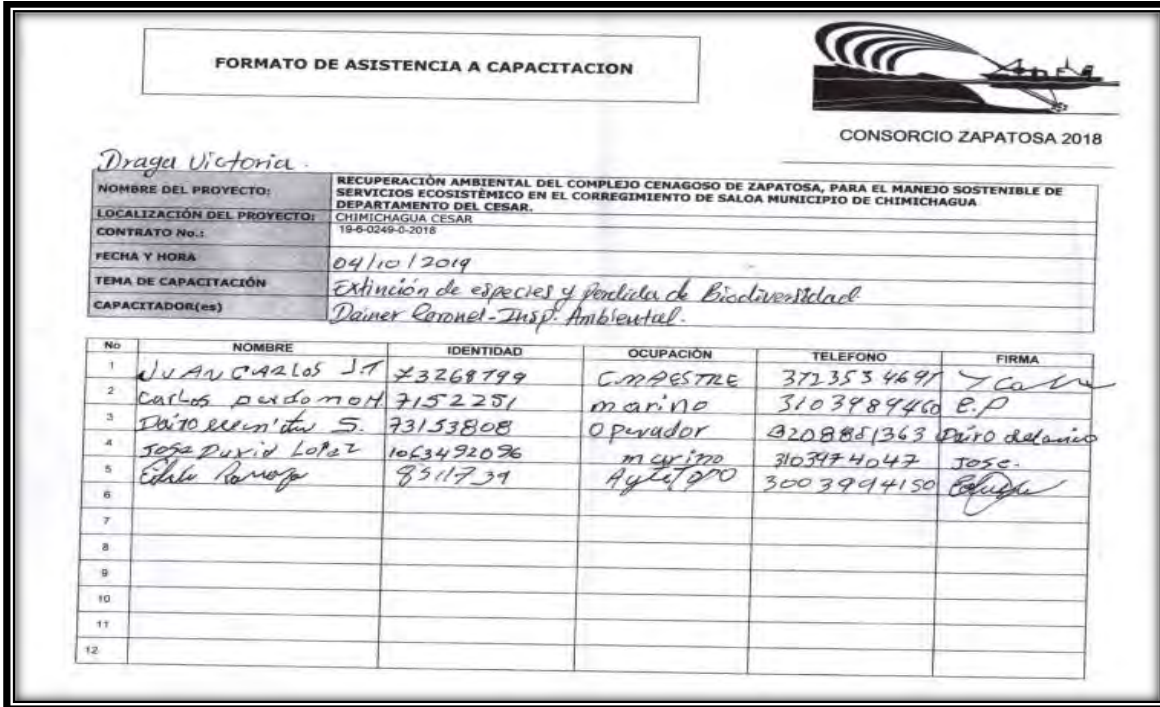 FORMATO DE ASISTENCIA A CAPACITACION
CONSORCIO ZAPATOSA 2018
Draga Victoria.
NOMBRE DEL PROYECTO: RECUPERACIÓN AMBIENTAL DEL COMPLEJO CENAGOSO DE ZAPATOSA, PARA EL MANEJO SOSTENIBLE DE
SERVICIOS ECOSISTÈMICO EN EL CORREGIMIENTO DE SALOA MUNICIPIO DE CHIMICHAGUA
DEPARTAMENTO DEL CESAR.
LOCALIZACIÓN DEL PROYECTO: CHIMICHAGUA CESAR
CONTRATO No.: 19-6-0249-0-2018
FECHA Y HORA 04/10/2019
TEMA DE CAPACITACIÓN Extinción de especies y perdida de Biodiversidad
CAPACITADOR(es) Dainer Coronel-Insp. Ambiental.
No NOMBRE IDENTIDAD OCUPACIÓN TELEFONO FIRMA
1 JUAN CARLOS J.T 73268799 C.MAESTRE
2 Carlos perdomo H 7152251 marino 3103989460 E.P
3 Dairo S. 73153808 Operador 3208851363 Dairo
4 Jose David Lopez 1063492096 marino 3103974047 Jose.
5 8511739 3003994150
6
7
8
9
10
11
12